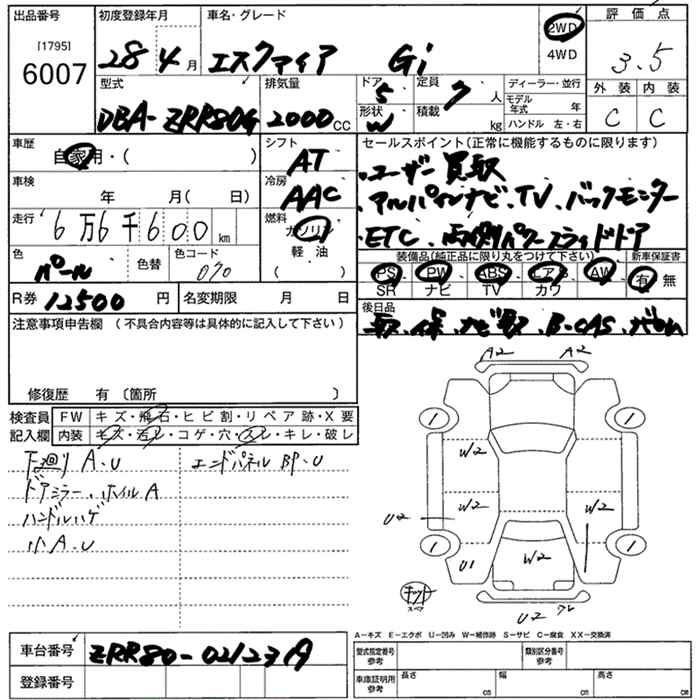 出品番号 初度登録年月 車名・グレード 2WD 評価点
[1795]
6007 28年4月 エスクァイア Gi 4WD 3.5
型式 排気量 ドア 5 定員 7人 ディーラー・並行 外装 内装
DBA-ZRR80G 2000cc 形状 W 積載 kg モデル年式 年 C C
ハンドル 左・右
車歴 シフト セールスポイント(正常に機能するものに限ります)
自家用・( ) AT ・ユーザー買取
車検 冷房 ・アルパインナビ・TV・バックモニター
年 月( 日) AAC
走行 6万6千600km 燃料 ・ETC・両側パワースライドドア
ガソリン
色 色替 色コード 軽油 装備品(純正品に限り丸をつけて下さい) 新車保証書
パール 070 ( ) PS PW ABS エアB AW 有・無
SR ナビ TV カワ
R券 12500円 名変期限 月 日 後日品
取、保、ナビ取、B-CAS、
注意事項申告欄 (不具合内容等は具体的に記入して下さい)
A2 A2
修復歴 有〔箇所 〕
検査員 FW キズ・飛石・ヒビ割・リペア跡・X要
記入欄 内装 キズ・汚レ・コゲ・穴・スレ・キレ・破レ
1 1
下廻り A・U エンドパネル BP・U W2
ドアミラー、ホイルA
ハンドルハゲ W2 W2
U2
小A・U
1 1
U1 W2
キット
スペア
U2
A-キズ E-エクボ U-凹み W-補修跡 S-サビ C-腐食 XX-交換済
車台番号 ZRR80-02123 型式指定番号 参考 類別区分番号 参考
登録番号 車庫証明用 参考 長さ cm 幅 cm 高さ cm